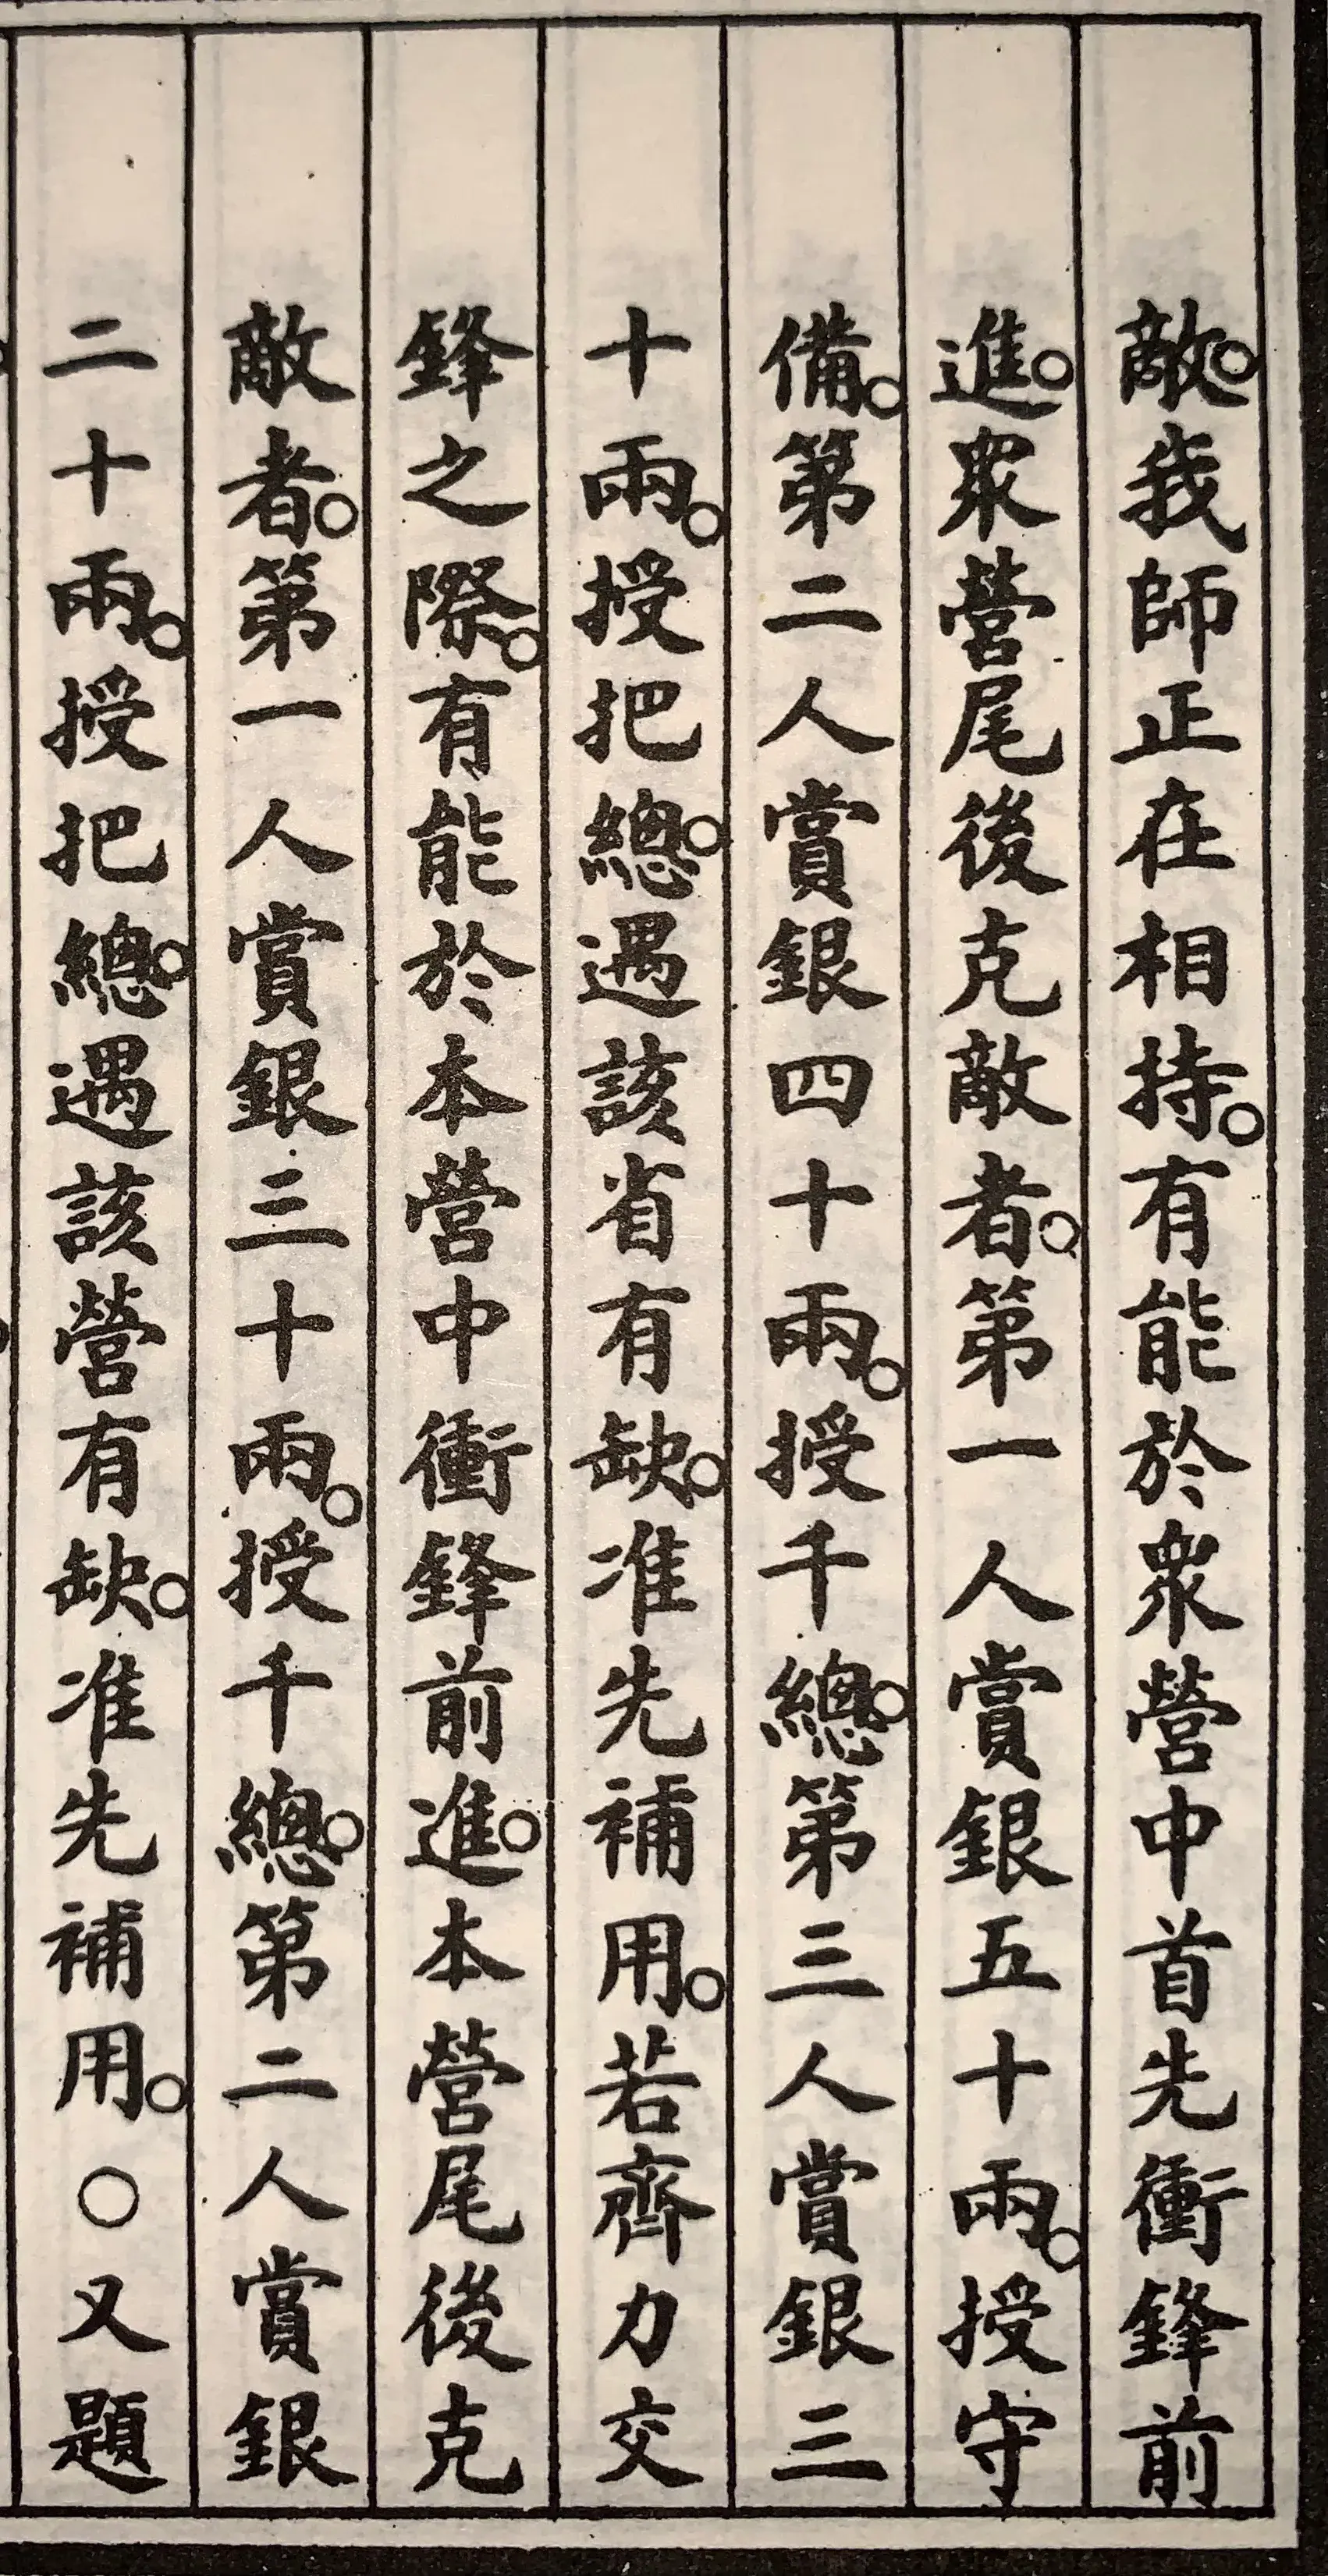 敵。我師正在相持。有能於衆營中首先衝鋒前
進。衆營尾後克敵者。第一人賞銀五十兩。授守
備。第二人賞銀四十兩。授千總。第三人賞銀三
十兩。授把總。遇該省有缺。准先補用。若齊力交
鋒之際。有能於本營中衝鋒前進。本營尾後克
敵者。第一人賞銀三十兩。授千總。第二人賞銀
二十兩。授把總。遇該營有缺。准先補用。○又題